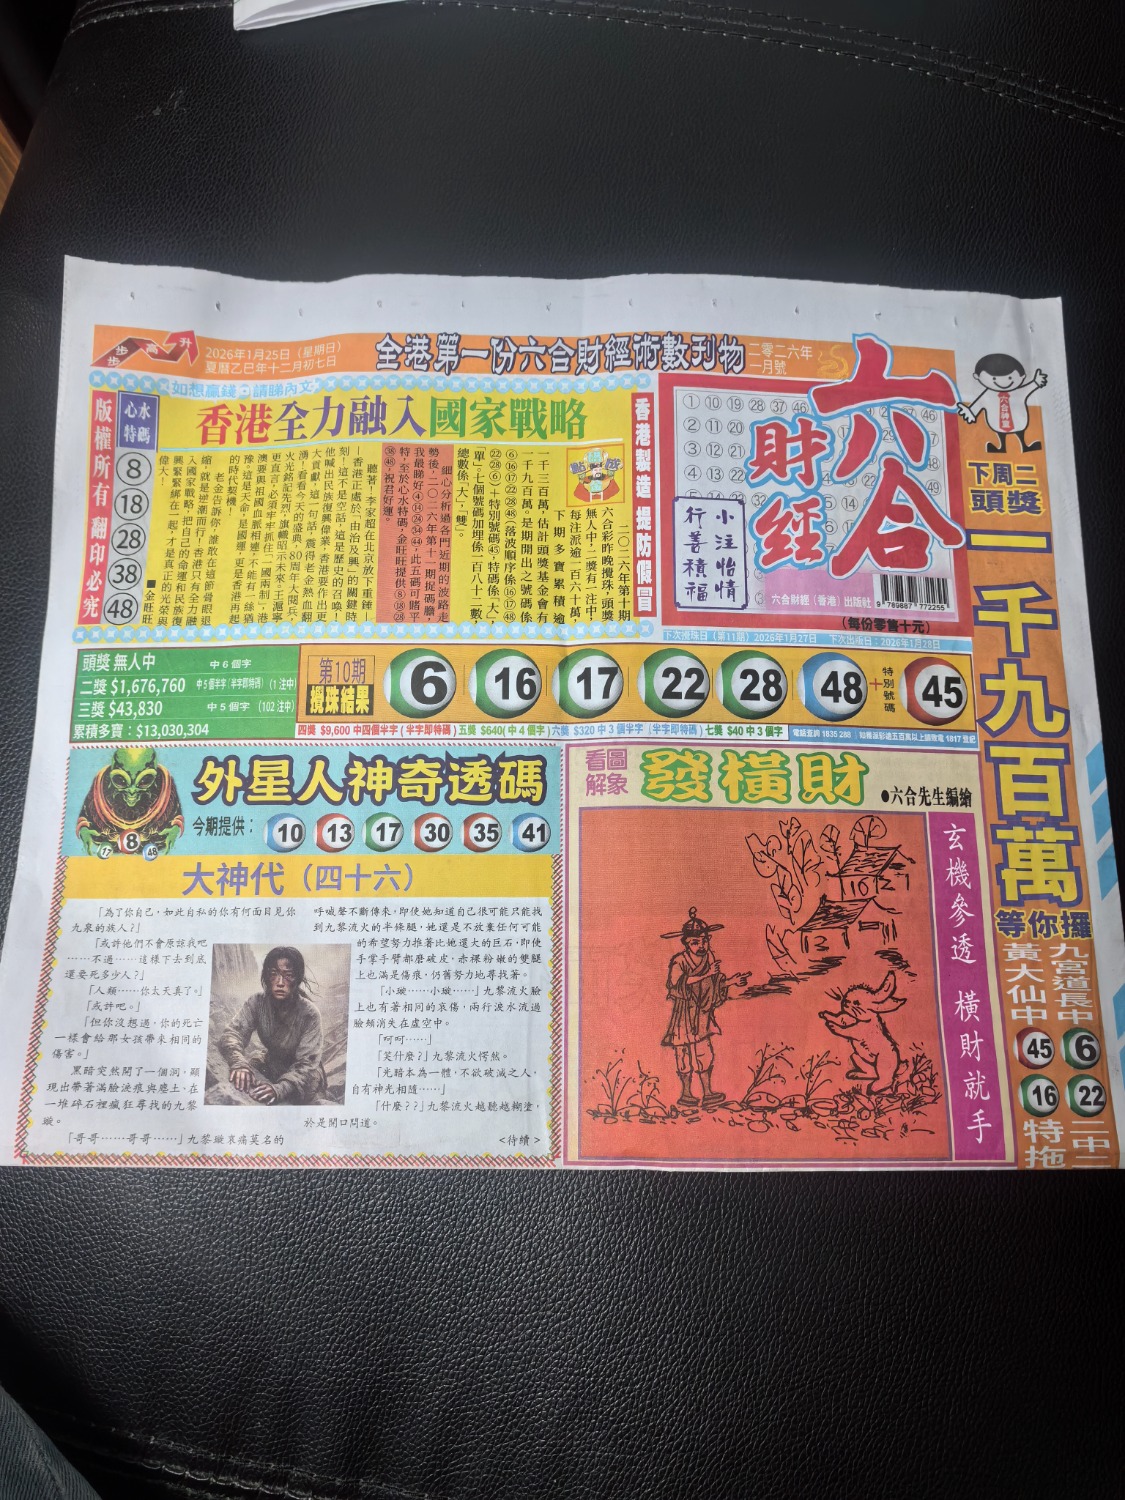 步步高升
2026年1月25日（星期日）
夏曆乙巳年十二月初七日
全港第一份六合財經術數刊物
二零二六年
一月號
六合
財經
如想贏錢·請睇內文
香港全力融入國家戰略
版權所有 翻印必究
心水
特碼
8
18
28
38
48
香港製造 提防假冒
二〇二六年第十期
六合彩昨晚攪珠，頭獎
無人中，二獎有一注中，
每注派逾一百六十萬，
下期多寶累積逾
一千三百萬，估計頭獎基金會有
一千九百萬。是期開出之號碼係
⑥⑯⑰㉒㉘㊽（落波順序係⑯⑰㊽
㉒㉘⑥）＋特別號碼㊺，特碼係「大」，
單」。七個號碼加埋係一百八十二數，
總數係「大」，「雙」。
細心分析過各門近期的波路走
勢後，二〇二六年第十一期捉碼膽，
我最睇好④⑭㉔㉞㊹，此五碼可賭平
特，至於心水特碼，金旺旺提供⑧⑱㉘
㊳㊽，祝君好運。
聽著！李家超在北京放下重錘
—香港正處於「由治及興」的關鍵時
刻！這不是空話，這是歷史的召喚！
他喊出民族復興偉業，香港要作出更
大貢獻，這一句話，震得老金熱血翻
湧！看看今天的盛典，80周年大閱兵，
火光銘記先烈，旗幟昭示未來！王滬寧
更直言，必須牢牢抓住「一國兩制」，港
澳要與祖國血脈相連，不能有一絲猶
豫。這是天命，是國運，更是香港再起
的時代契機！
老金告訴你，誰敢在這節骨眼退
縮，就是逆潮而行！香港只有全力融
入國家戰略，把自己的命運和民族復
興緊緊綁在一起，才是真正的光榮與
偉大！
■金旺旺
小注怡情
行善積福
六合財經（香港）出版社
9 789887 772255
（每份零售十元）
下次攪珠日（第11期）2026年1月27日 下次出版日：2026年1月28日
下周二
頭獎
一千九百萬
等你攞
九宮道長中
黃大仙中
45 6
16 22
二中二
特拖
頭獎 無人中 中 6 個字
二獎 $1,676,760 中5個半字（半字即特碼）（1 注中）
三獎 $43,830 中 5 個字（102 注中）
累積多寶：$13,030,304
第10期
攪珠結果
6 16 17 22 28 48 + 特別號碼 45
四獎 $9,600 中四個半字（半字即特碼）五獎 $640（中 4 個字）六獎 $320 中 3 個半字（半字即特碼）七獎 $40 中 3 個字
電話查詢 1835 288
外星人神奇透碼
今期提供：10 13 17 30 35 41
17 8 48
大神代（四十六）
「為了你自己，如此自私的你有何面目見你
九泉的族人？」
「或許他們不會原諒我吧
……不過……這樣下去到底
還要死多少人？」
「人類……你太天真了。」
「或許吧。」
「但你沒想過，你的死亡
一樣會給那女孩帶來相同的
傷害。」
黑暗突然開了一個洞，顯
現出帶著滿臉淚痕與塵土，在
一堆碎石裡瘋狂尋找的九黎
璇。
「哥哥……哥哥……」九黎璇哀痛莫名的
呼喊聲不斷傳來，即使她知道自己很可能只能找
到九黎流火的半條腿，她還是不放棄任何可能
的希望努力推著比她還大的巨石，即使
手掌手臂都磨破皮，赤裸粉嫩的雙腿
上也滿是傷痕，仍舊努力地尋找著。
「小璇……小璇……」九黎流火臉
上也有著相同的哀傷，兩行淚水流過
臉頰消失在虛空中。
「呵呵……」
「笑什麼？」九黎流火愕然。
「光暗本為一體，不欲破滅之人，
自有神光相隨……」
「什麼？？」九黎流火越聽越糊塗，
於是開口問道。
<待續>
看圖
解象
發橫財
●六合先生編繪
玄機參透 橫財就手